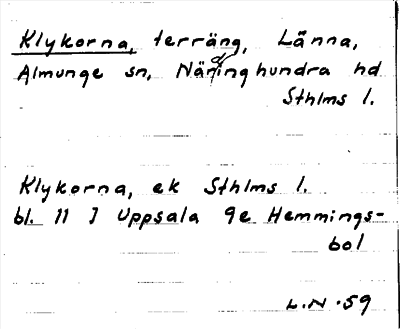 Klykorna, terräng, Länna,
Almunge sn, Närdinghundra hd
Sthlms l.
Klykorna, ek Sthlms l.
bl. 11 I Uppsala 9e Hemmings-
bol
L.N. 59